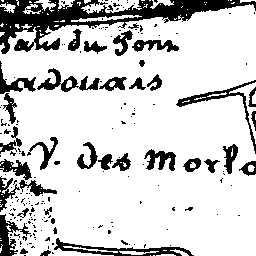 du Pont
adouais
V. des Morlo